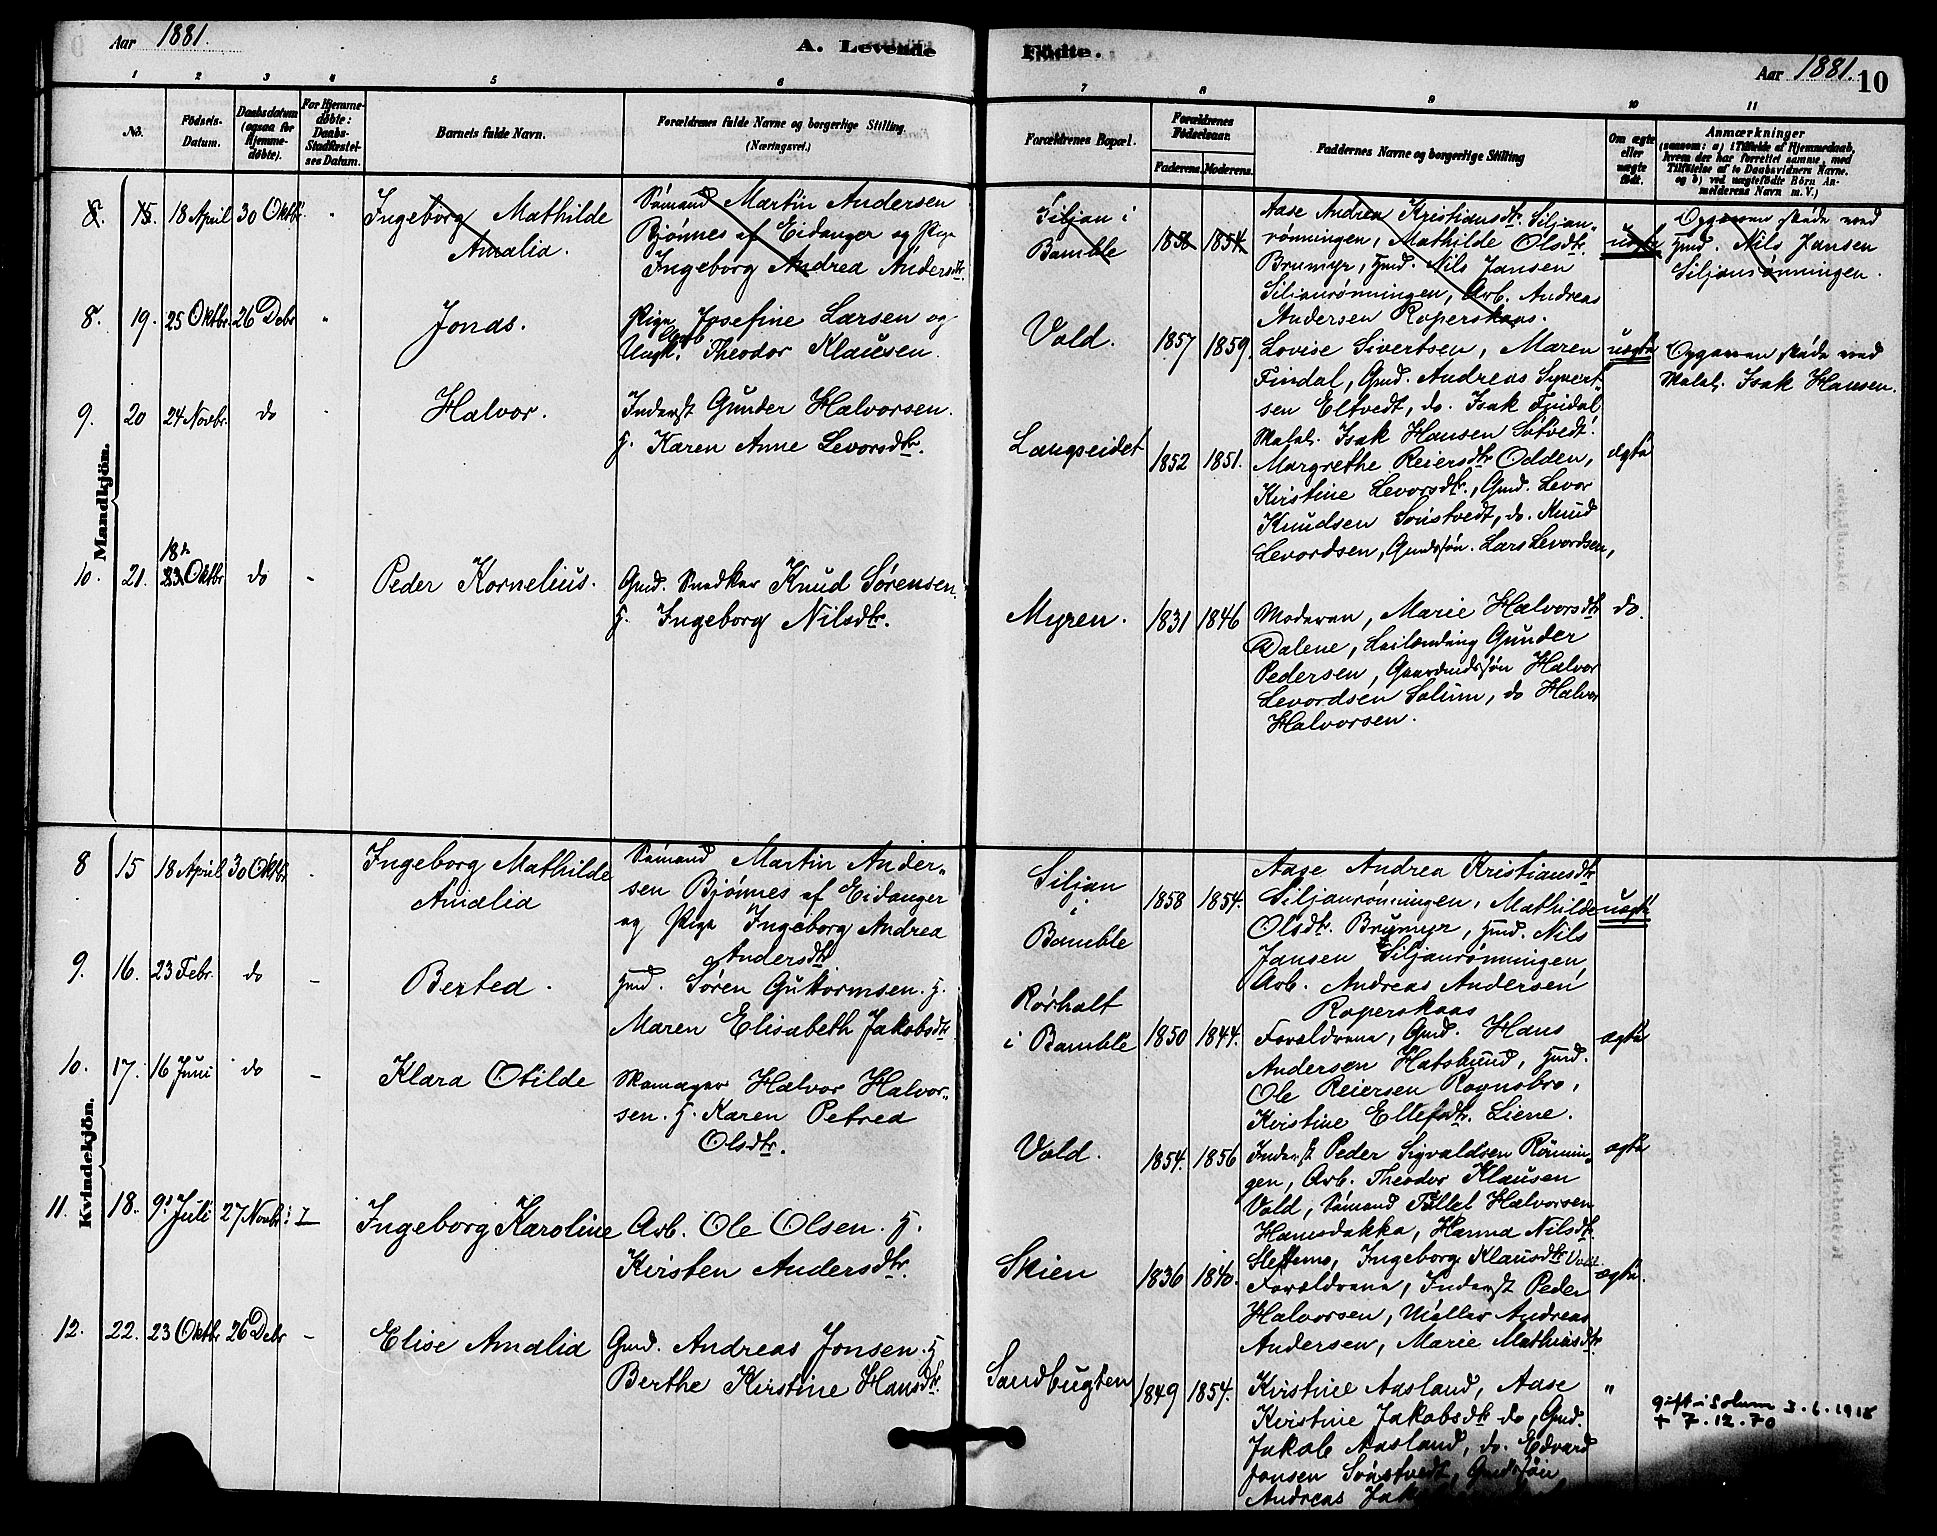 Aar 1881.
A. Levende
Fødte.
Aar 1881.
10
1 2 3 4 5 6 7 8 9 10 11
No.
Fødsels-
Datum.
Daabsdatum
(ogsaa for
Hjemme-
døbte).
For Hjemme-
døbte:
Daabs-
Stadfæstel-
ses Datum.
Barnets fulde Navn.
Forældrenes fulde Navne og borgerlige Stilling.
(Næringsvei.)
Forældrenes Bopæl.
Forældrenes
Fødselsaar.
Faderens. Moderens.
Faddernes Navne og borgerlige Stilling
Om ægte
eller
uægte
født.
Anmærkninger
(saasom: a) i Tilfælde af Hjemmedaab,
hvem der har forrettet samme, med
Tilføielse af to Daabsvidners Navne,
og b) ved uægtefødte Børn An-
melderens Navn m. V.)
Mandkjön.
8. 15. 18 April 30 Oktbr
Ingeborg Mathilde
Amalia.
Sømand Martin Andersen
Bjönnes af Eidanger og Pige
Ingeborg Andrea Andersdtr.
Siljan i
Bamble
1858 1854
Aase Andrea Kristiansdtr. Siljan-
rønningen, Mathilde Olsdtr.
Brumyr, Hmd. Nils Jansen
Siljanrønningen, Arb. Andreas
Andersen Roperskaas.
uægte
Opgaven skede ved
Hmd. Nils Jansen
Siljanrønningen.
8. 19. 25 Oktbr. 26 Debr "
Jonas.
Pige Josefine Larsen og
Ungk. Arb. Theodor Klausen.
Vold.
1857 1859.
Lovise Sivertsen, Maren
Findal, Gmd. Andreas Syvert-
sen Eltvedt, do. Isak Findal
Malal. Isak Hansen Sötvedt.
uægte
Opgaven skede ved
Malal. Isak Hansen.
9. 20 24 Novbr. do
Halvor.
Inderst Gunder Halvorsen.
H. Karen Anne Levorsdtr.
Langseidet
1852 1851.
Margrethe Reiersdtr Odden,
Kirstine Levorsdtr., Gmd. Levor
Knudsen Sönstvedt, do. Knud
Levordsen, Gmdssøn. Lars Levordsen,
ægte
10. 21. 18de 23 Oktbr do -
Peder Kornelius.
Gmd. Snedker Knud Sørensen
H. Ingeborg Nilsdtr.
Myren.
1831 1846
Moderen, Marie Halvorsdtr
Dalene, Leilænding Gunder
Pedersen, Gaardmdssøn Halvor
Levordsen Solum, do Halvor
Halvorsen.
do.
Kvindekjön.
8 15 18 April 30 Oktbr.
Ingeborg Mathilde
Amalia
Sømand Martin Ander-
sen Bjönnes af Eidanger
og Pige Ingeborg Andrea
Andersdtr.
Siljan
i
Bamble
1858 1854.
Aase Andrea Kristiansdtr
Siljanrønningen, Mathilde
Olsdtr. Brumyr, Hmd. Nils
Jansen Siljanrønningen
Arb. Andreas Andersen
Roperskaas
uægte
9. 16. 23 Febr. do -
Berted.
Hmd. Søren Guttormsen. H.
Maren Elisabeth Jakobsdtr.
Rörholt
i Bamble
1850 1844.
Forældrene, Gmd. Hans
Andersen Hatskund, Hmd.
Ole Reiersen Rognsbro,
Kirstine Ellefsdtr. Liene.
ægte
10. 17. 16 Juni do -
Klara Otilde
Skomager Halvor Halvor-
sen. H. Karen Petrea
Olsdtr.
Vold.
1854. 1856
Inderst Peder Sigvaldsen Rønnin-
gen, Arb. Theodor Klausen
Vold, Sømand Tellef Halvorsen
Hansdakka, Hanna Nilsdtr.
Slettemo, Ingeborg Klausdtr Vold.
ægte
11. 18. 9. Juli 27 Novbr.
Ingeborg Karoline
Arb. Ole Olsen. H.
Kirsten Andersdtr.
Skien
1836 1840.
Forældrene, Inderst Peder
Halvorsen, Møller Andreas
Andersen, Marie Mathiasdtr.
ægte.
12. 22. 23 Oktbr 26 Debr -
Elise Amalia
Gmd. Andreas Jonsen. H
Berthe Kirstine Hansdtr.
Sandbugten
1849 1854.
Kirstine Aasland, Aase
Kirstine Jakobsdtr do, Gmd.
Jakob Aasland, do. Edvard
Jonsen Sönstvedt, Gmdssøn
Andreas
"
gift i Solum 3.6.1918
+ 7.12.70